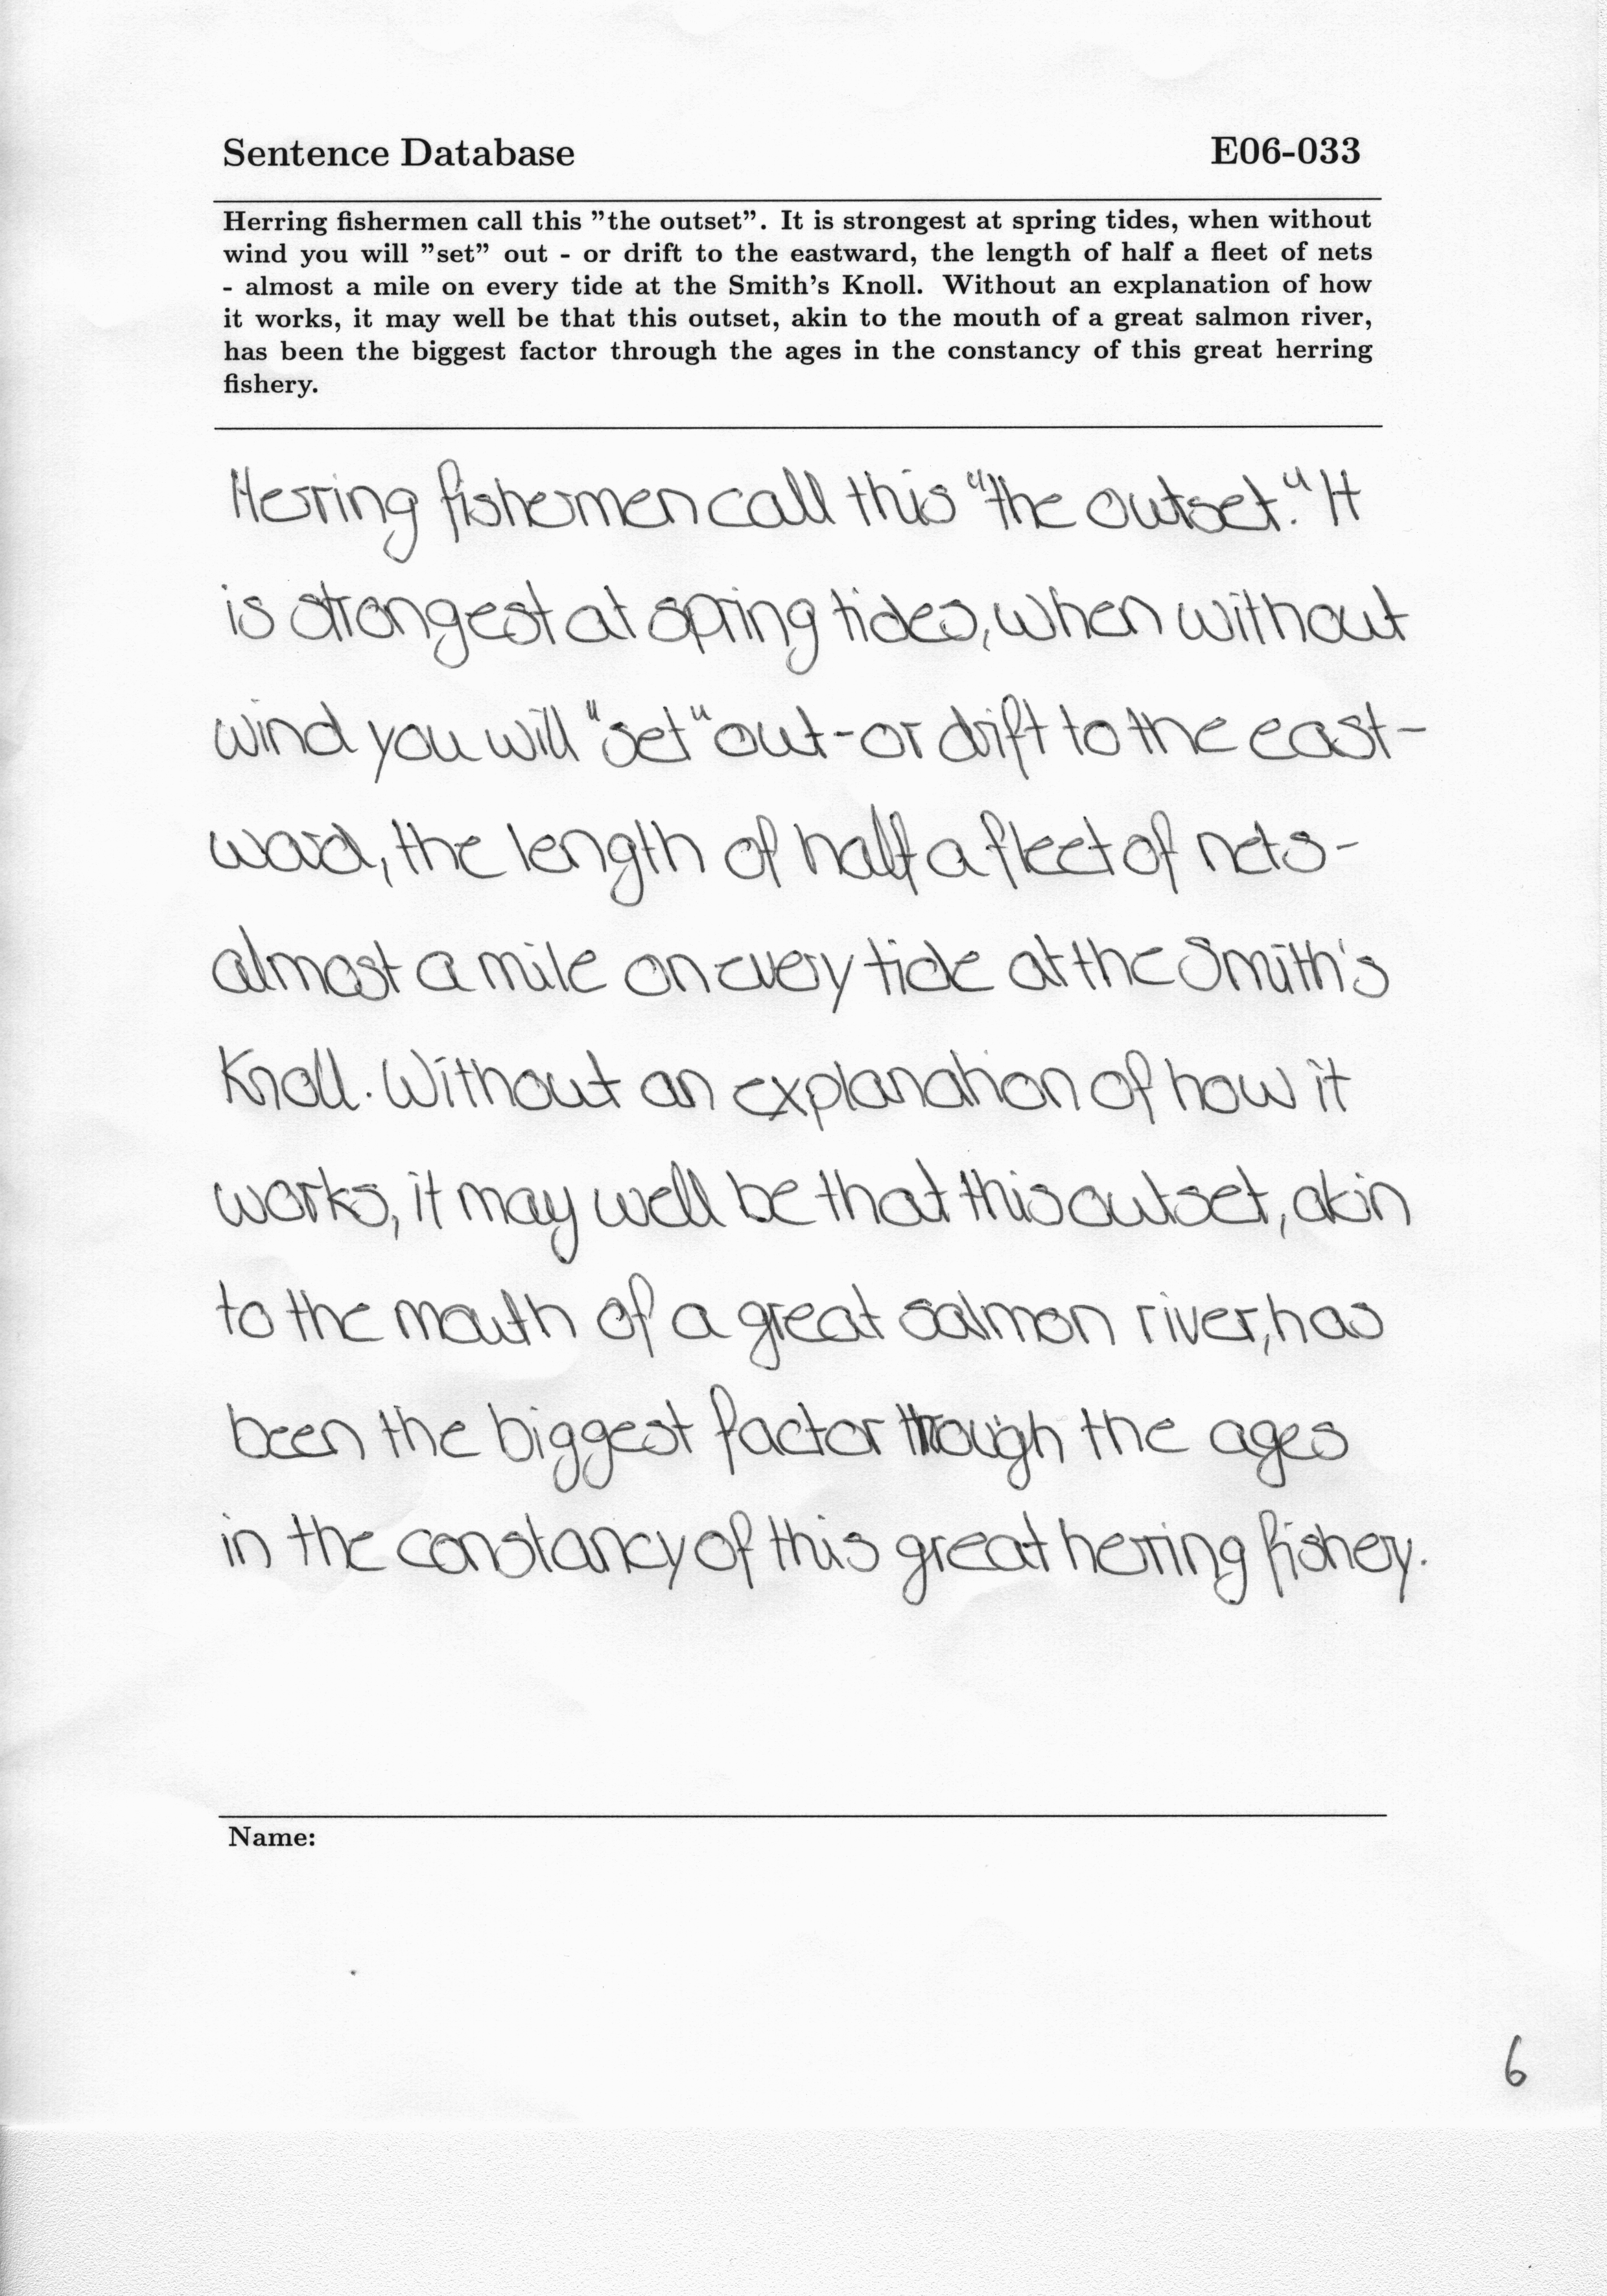 Sentence Database E06-033
Herring fishermen call this ”the outset”. It is strongest at spring tides, when without
wind you will ”set” out - or drift to the eastward, the length of half a fleet of nets
- almost a mile on every tide at the Smith's Knoll. Without an explanation of how
it works, it may well be that this outset, akin to the mouth of a great salmon river,
has been the biggest factor through the ages in the constancy of this great herring
fishery.
Herring fishermen call this "the outset." It
is strongest at spring tides, when without
wind you will "set" out - or drift to the east-
ward, the length of half a fleet of nets -
almost a mile on every tide at the Smith's
Knoll. Without an explanation of how it
works, it may well be that this outset, akin
to the mouth of a great salmon river, has
been the biggest factor through the ages
in the constancy of this great herring fishery.
Name:
6